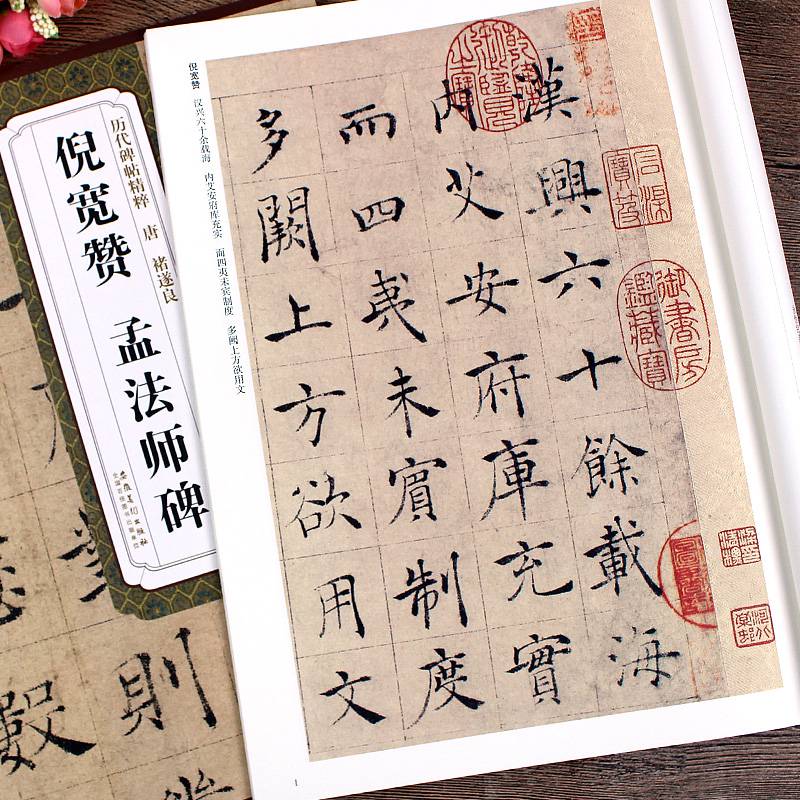 历代碑帖精粹 唐 褚遂良
倪宽赞 孟法师碑
安徽美术出版社
倪宽赞 汉兴六十余载海 内艾安府库充实 而四夷未宾制度 多阙上方欲用文
漢興六十餘載海
内艾安府庫充實
而四夷未賓制度
多闕上方欲用文
御書房鑑藏寶
乾隆御覽之寶
則
1